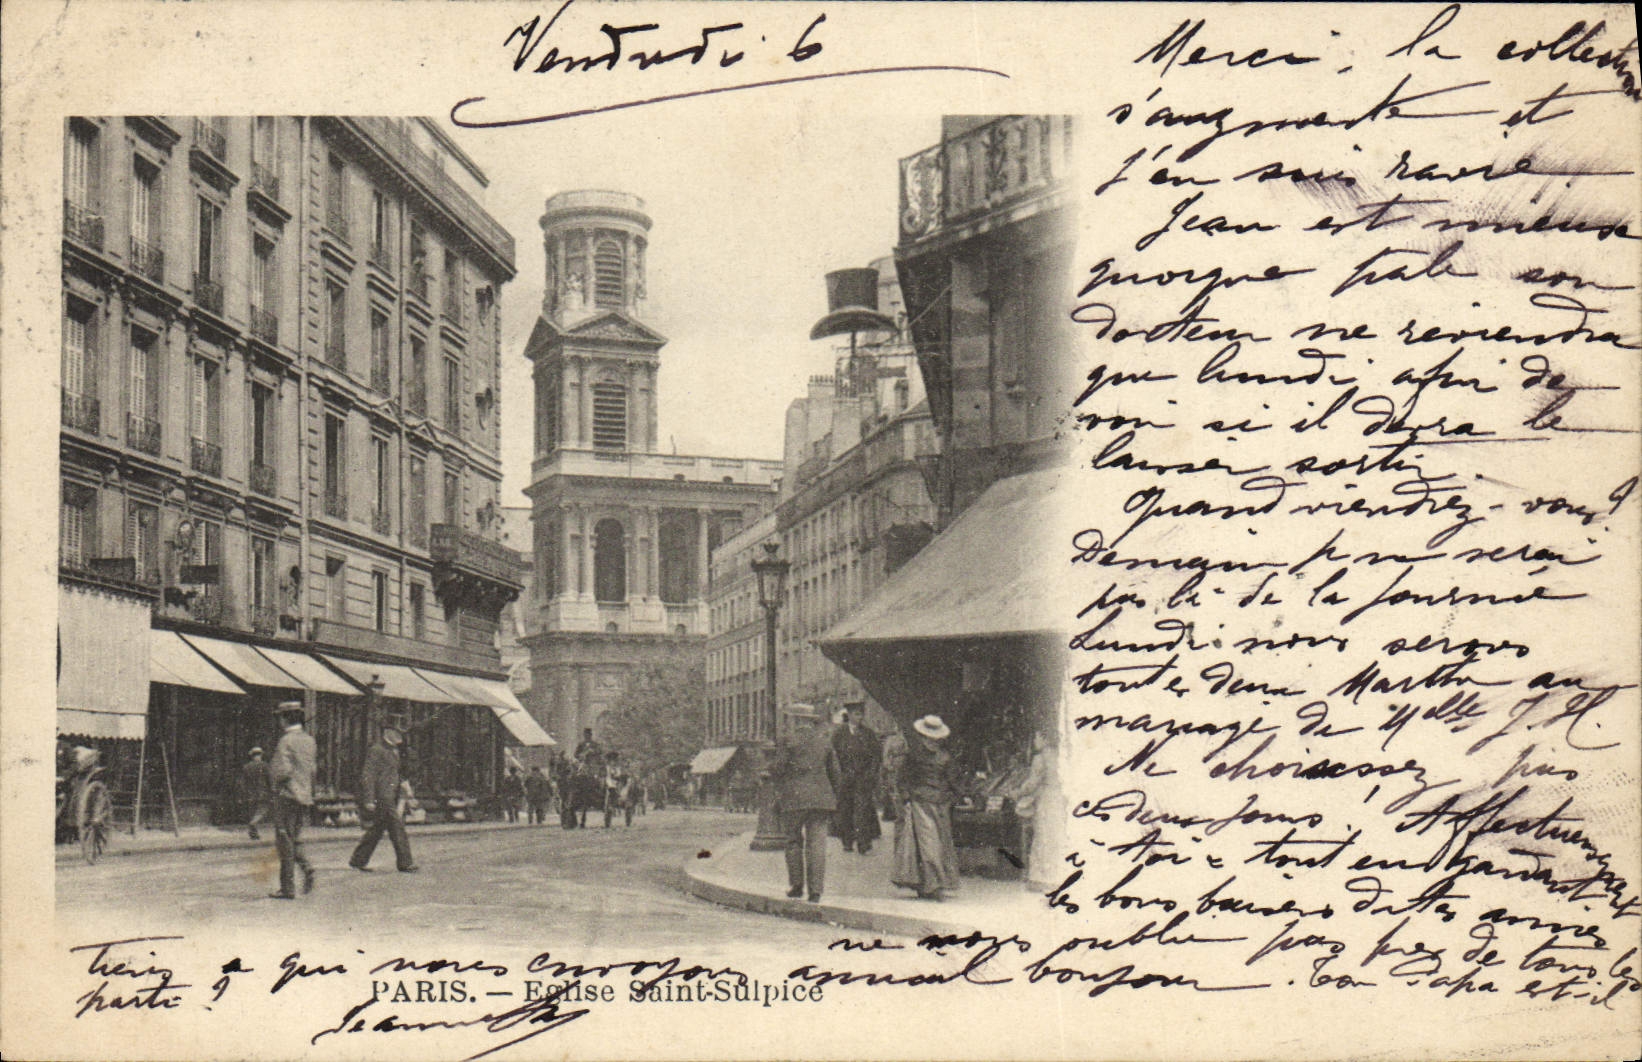 Vendredi 6
Merci, la collection
s'augmente et
j'en suis ravie.
Jean est mieux
quoique pale son
docteur ne reviendra
que lundi afin de
voir si il devra le
laisser sortir.
Quand viendrez-vous?
Demain je ne serai
pas là de la journée
Lundi nous serons
toutes deux Marthe au
mariage de Melle J. H.
Ne choisissez pas
ces deux jours! Affectueusement
à toi - tout en gardant
les bons baisers dites amies
ne nous oublie pas près de tous les
tiens a qui nous envoyons amical bonjour. Ton Papa est-il
parti?
Jeanne
PARIS. — Eglise Saint-Sulpice